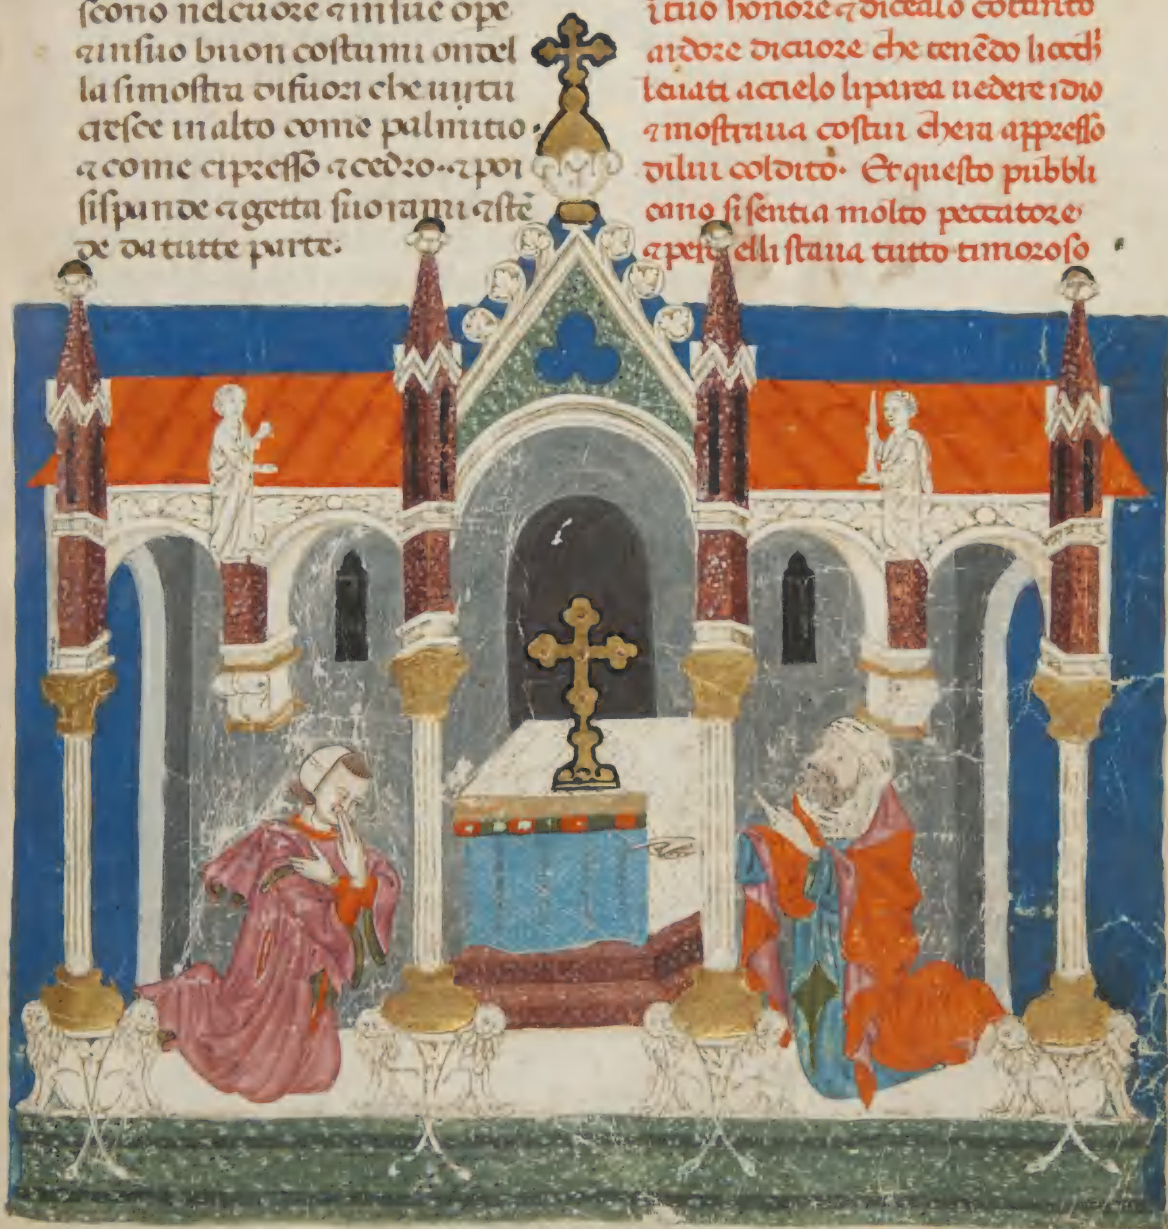 scono nel cuore ⁊ in sue ope
⁊ in suo buon costumi onde l
la si mostra di fuori che uirtu
cresce in alto come palmitio·
⁊ come cipresso ⁊ cedro·⁊ poi
si spande ⁊ getta suo rami ⁊ stē
de da tutte parte·
i tuo honore ⁊ dicealo cotanto
ardore di cuore che tenēdo li
leuati a cielo li parea uedere idio
⁊ mostraua costui chera appresso
di lui col dito· Et questo pubbli
cano si sentia molto peccatore
⁊ per elli staua tutto timoroso